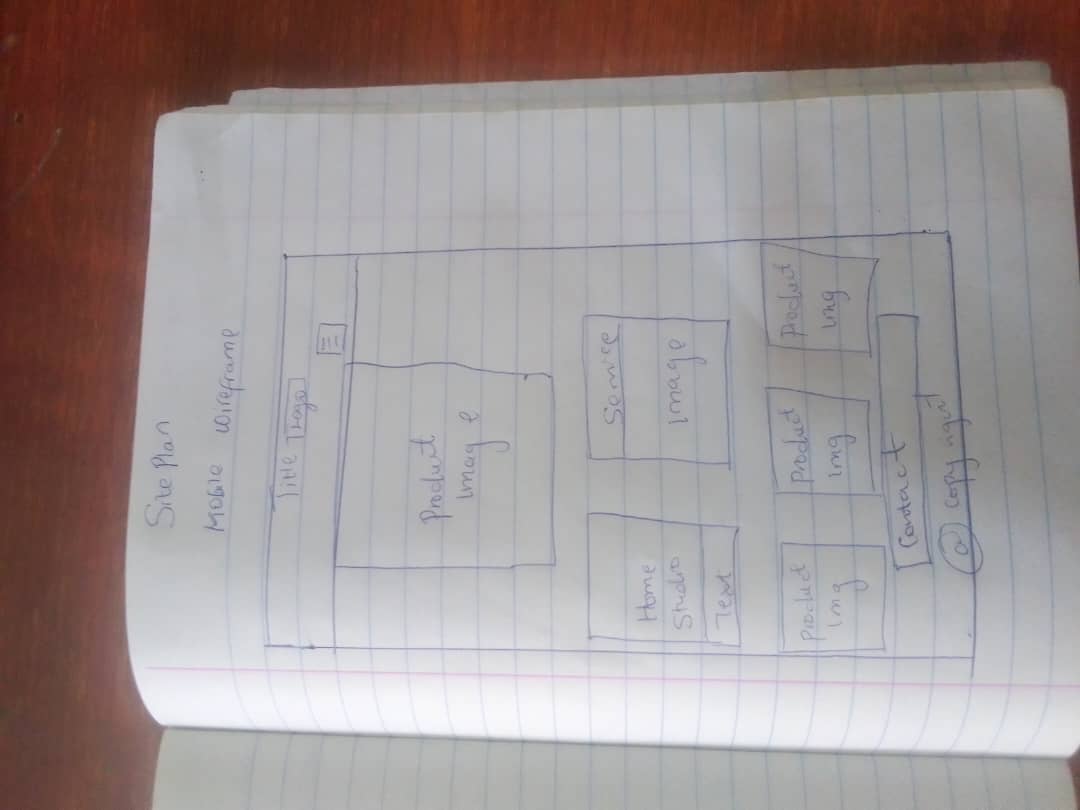 Site Plan
Mobile wireframe
Title Logo
Product
image
Home
Studio
Text
Service
image
Product
img
Product
img
Product
img
Contact
@ copy right